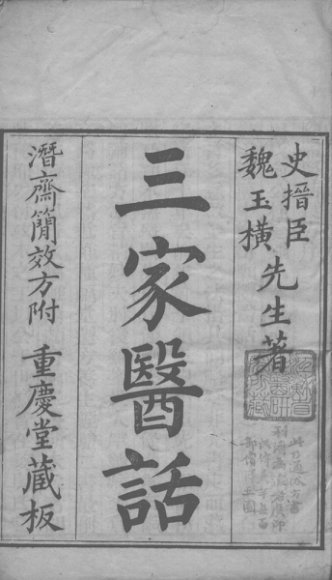 史搢臣
魏玉橫
先生著
三家醫話
潛齋簡效方附 重慶堂藏板